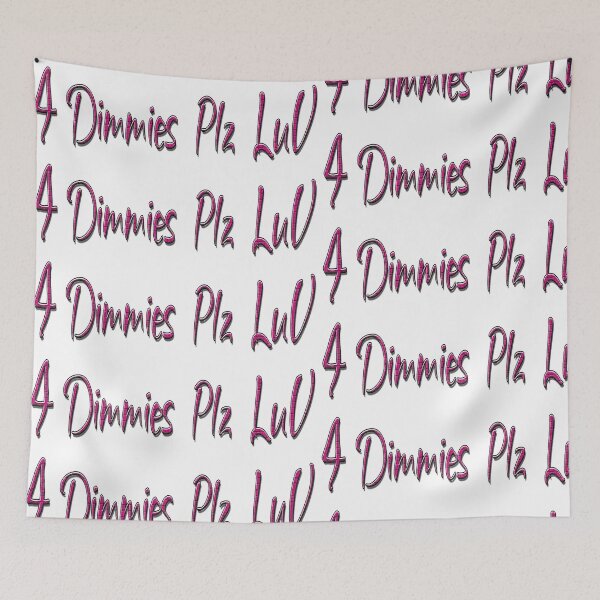 4 Dimmies Plz LuV
4 Dimmies Plz LuV
4 Dimmies Plz LuV
4 Dimmies Plz LuV
4 Dimmies Plz LuV
4 Dimmies Plz
4 Dimmies Plz
4 Dimmies Plz
4 Dimmies Plz
4 Dimmies Plz